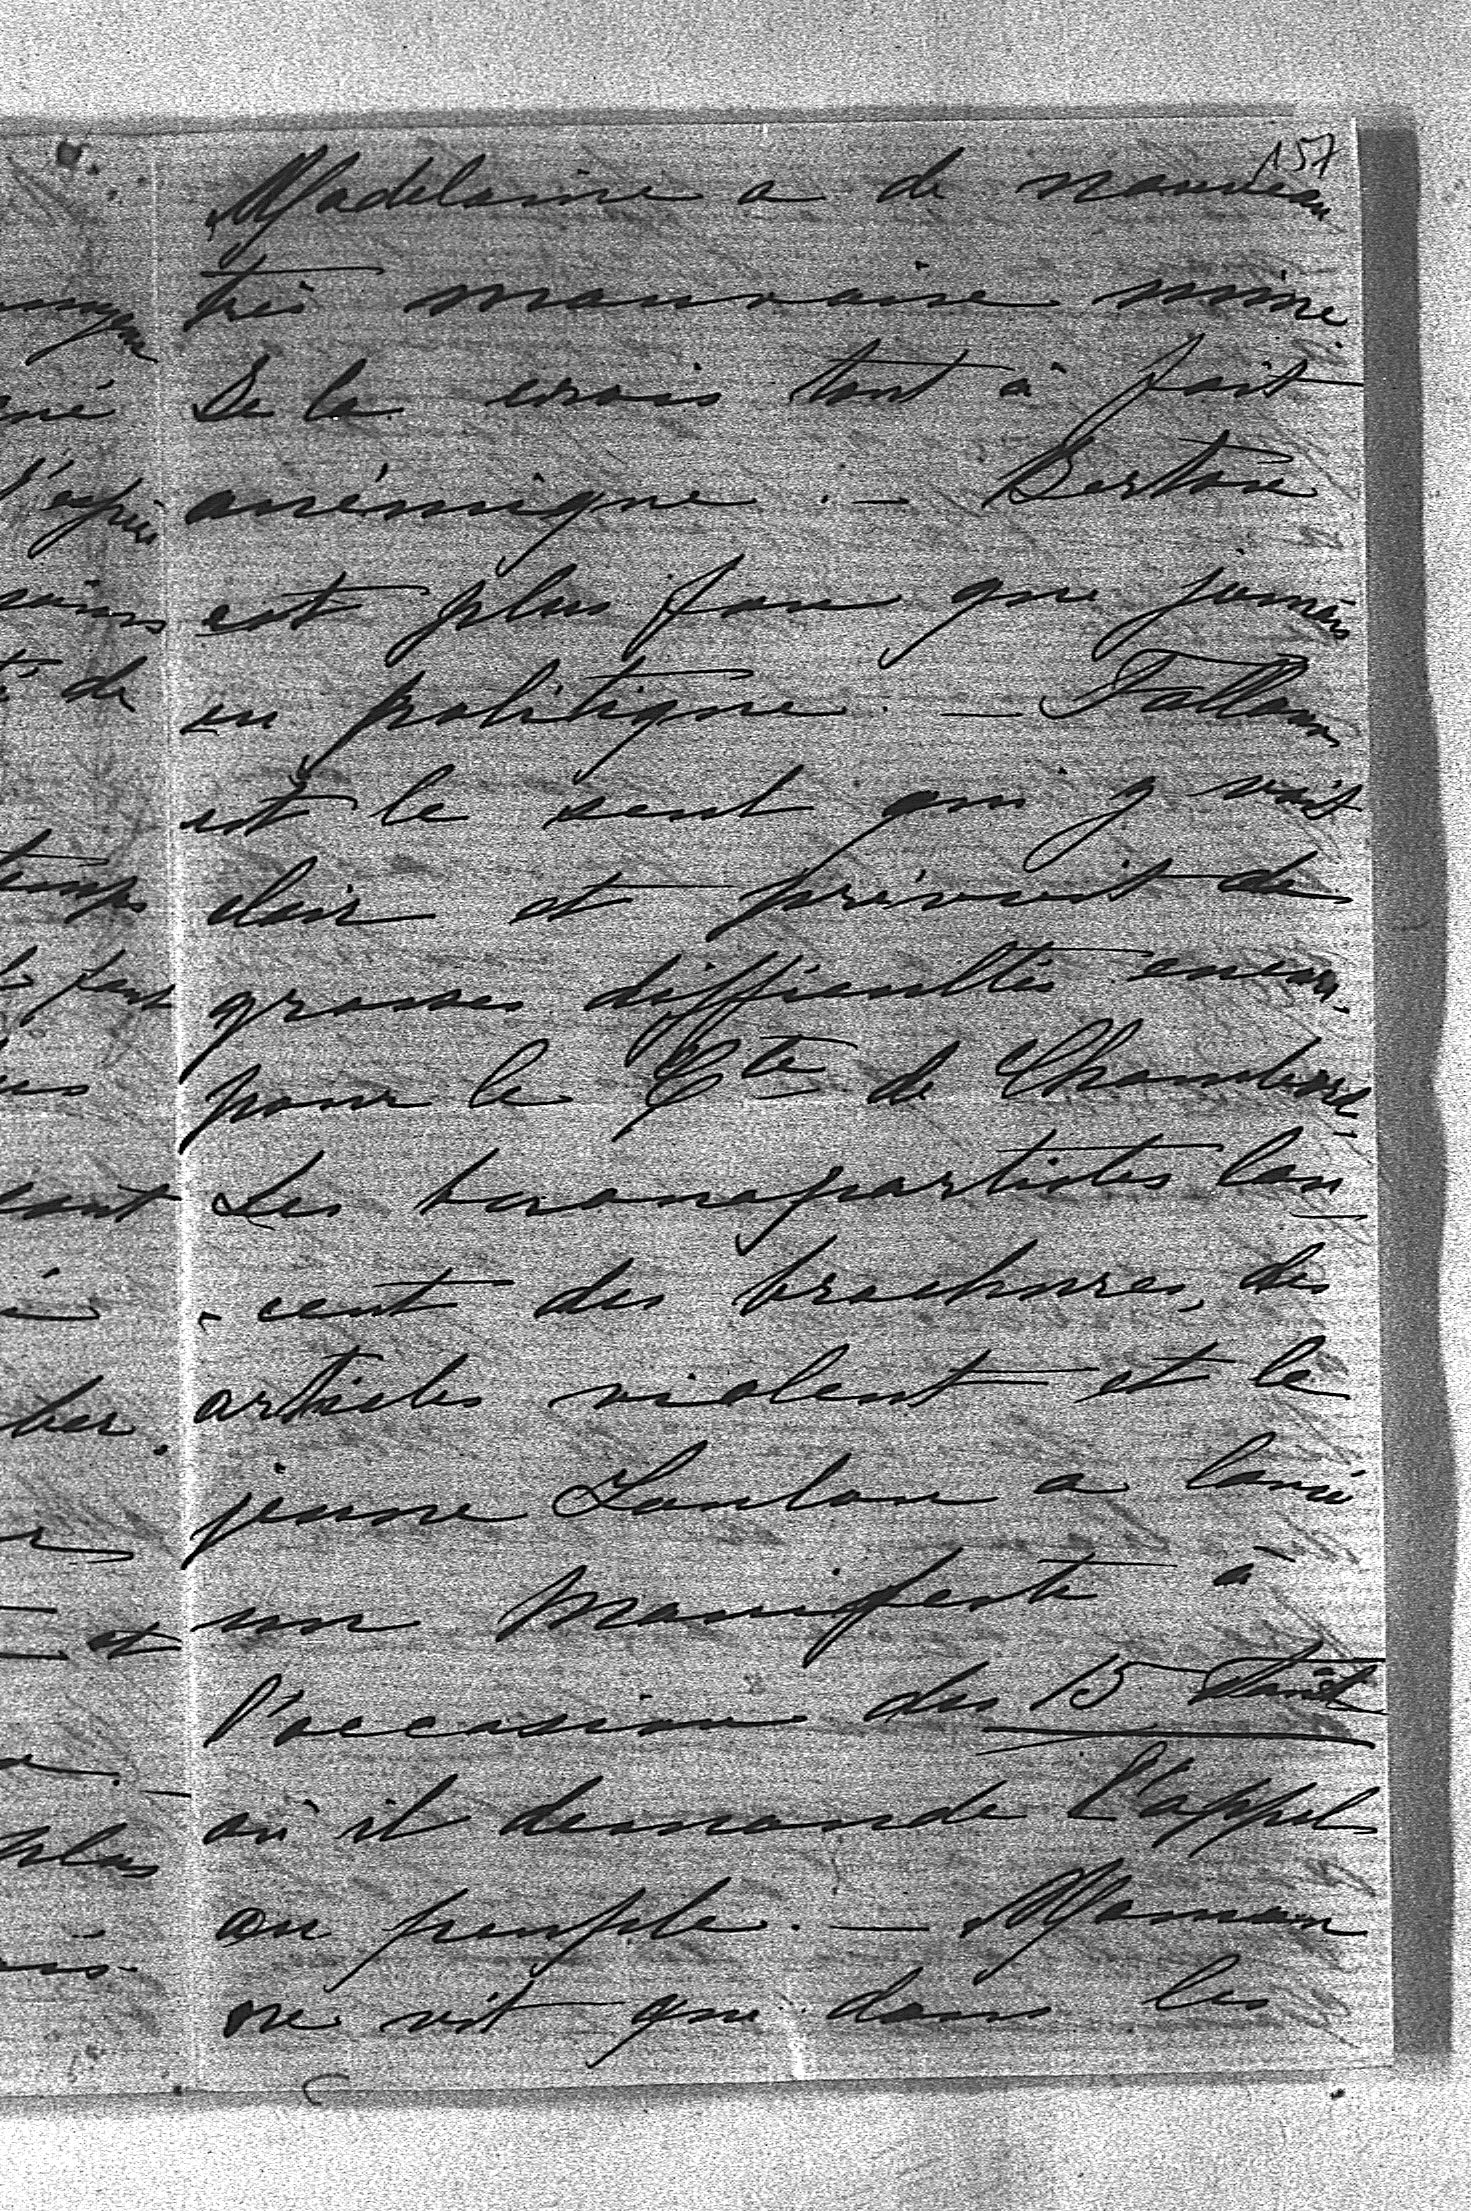 157
Madelaine a de nouveau
très mauvaise mine
Je la crois tout à fait
anémique. — Berton
est plus fou que jamais
en politique. — Falloux
est le seul qui y voit
clair et prévoit de
grosses difficultés encore
pour le Cte de Chambord.
Les bonapartistes lan
- cent des brochures, des
articles violent et le
jeune Loulou a lancé
un manifeste à
l'occasion du 15 Août
où il demande l'appel
au peuple. — Maman
ne vit que dans les